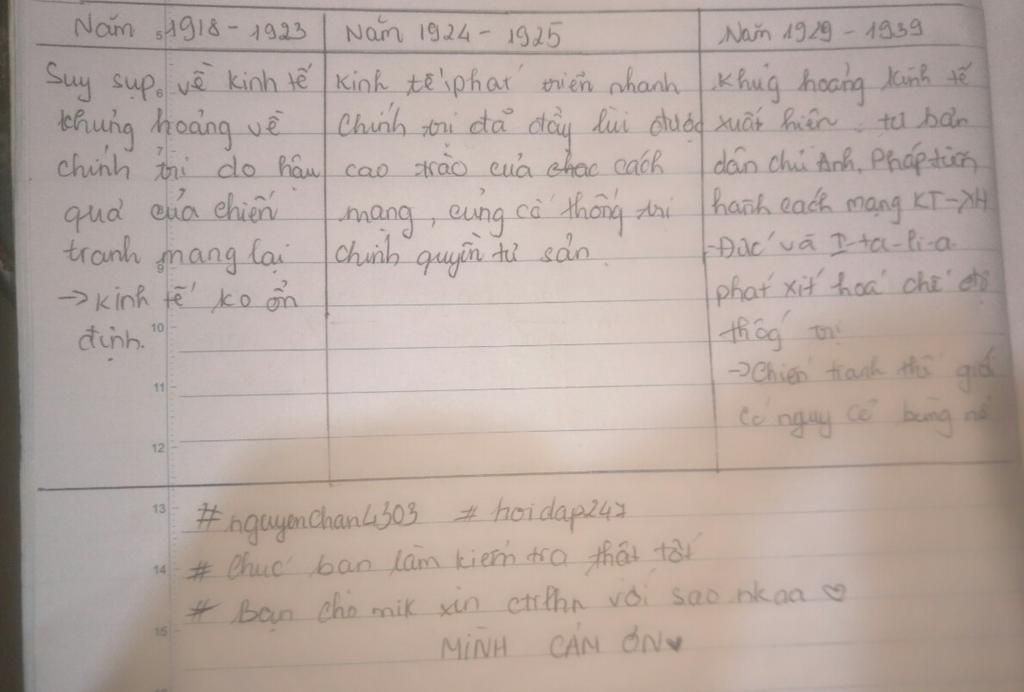 Năm 1918 - 1923
Suy sụp về kinh tế
khủng hoảng về
chính trị do hậu
quả của chiến
tranh mang lại
→ kinh tế ko ổn
định.
Năm 1924 - 1925
Kinh tế phát triển nhanh
Chính trị đã đẩy lùi được
cao trào của các cách
mạng, củng cố thống trị
chính quyền tư sản.
Năm 1929 - 1939
Khủg hoảng kinh tế
xuất hiện. tư bản
dân chủ Anh, Pháp tiến
hành cách mạng KT-XH
-Đức và I-ta-li-a
phát xít hoá chế độ
thốg trị
→Chiến tranh thế giới
có nguy cơ bùng nổ
10
11
12
13
#nguyenchan4303 #hoidap247
14
# Chúc bạn làm kiểm tra thật tốt
# Bạn cho mik xin ctrlhn với sao nkaa ♡
15
MÌNH CẢM ƠN♥